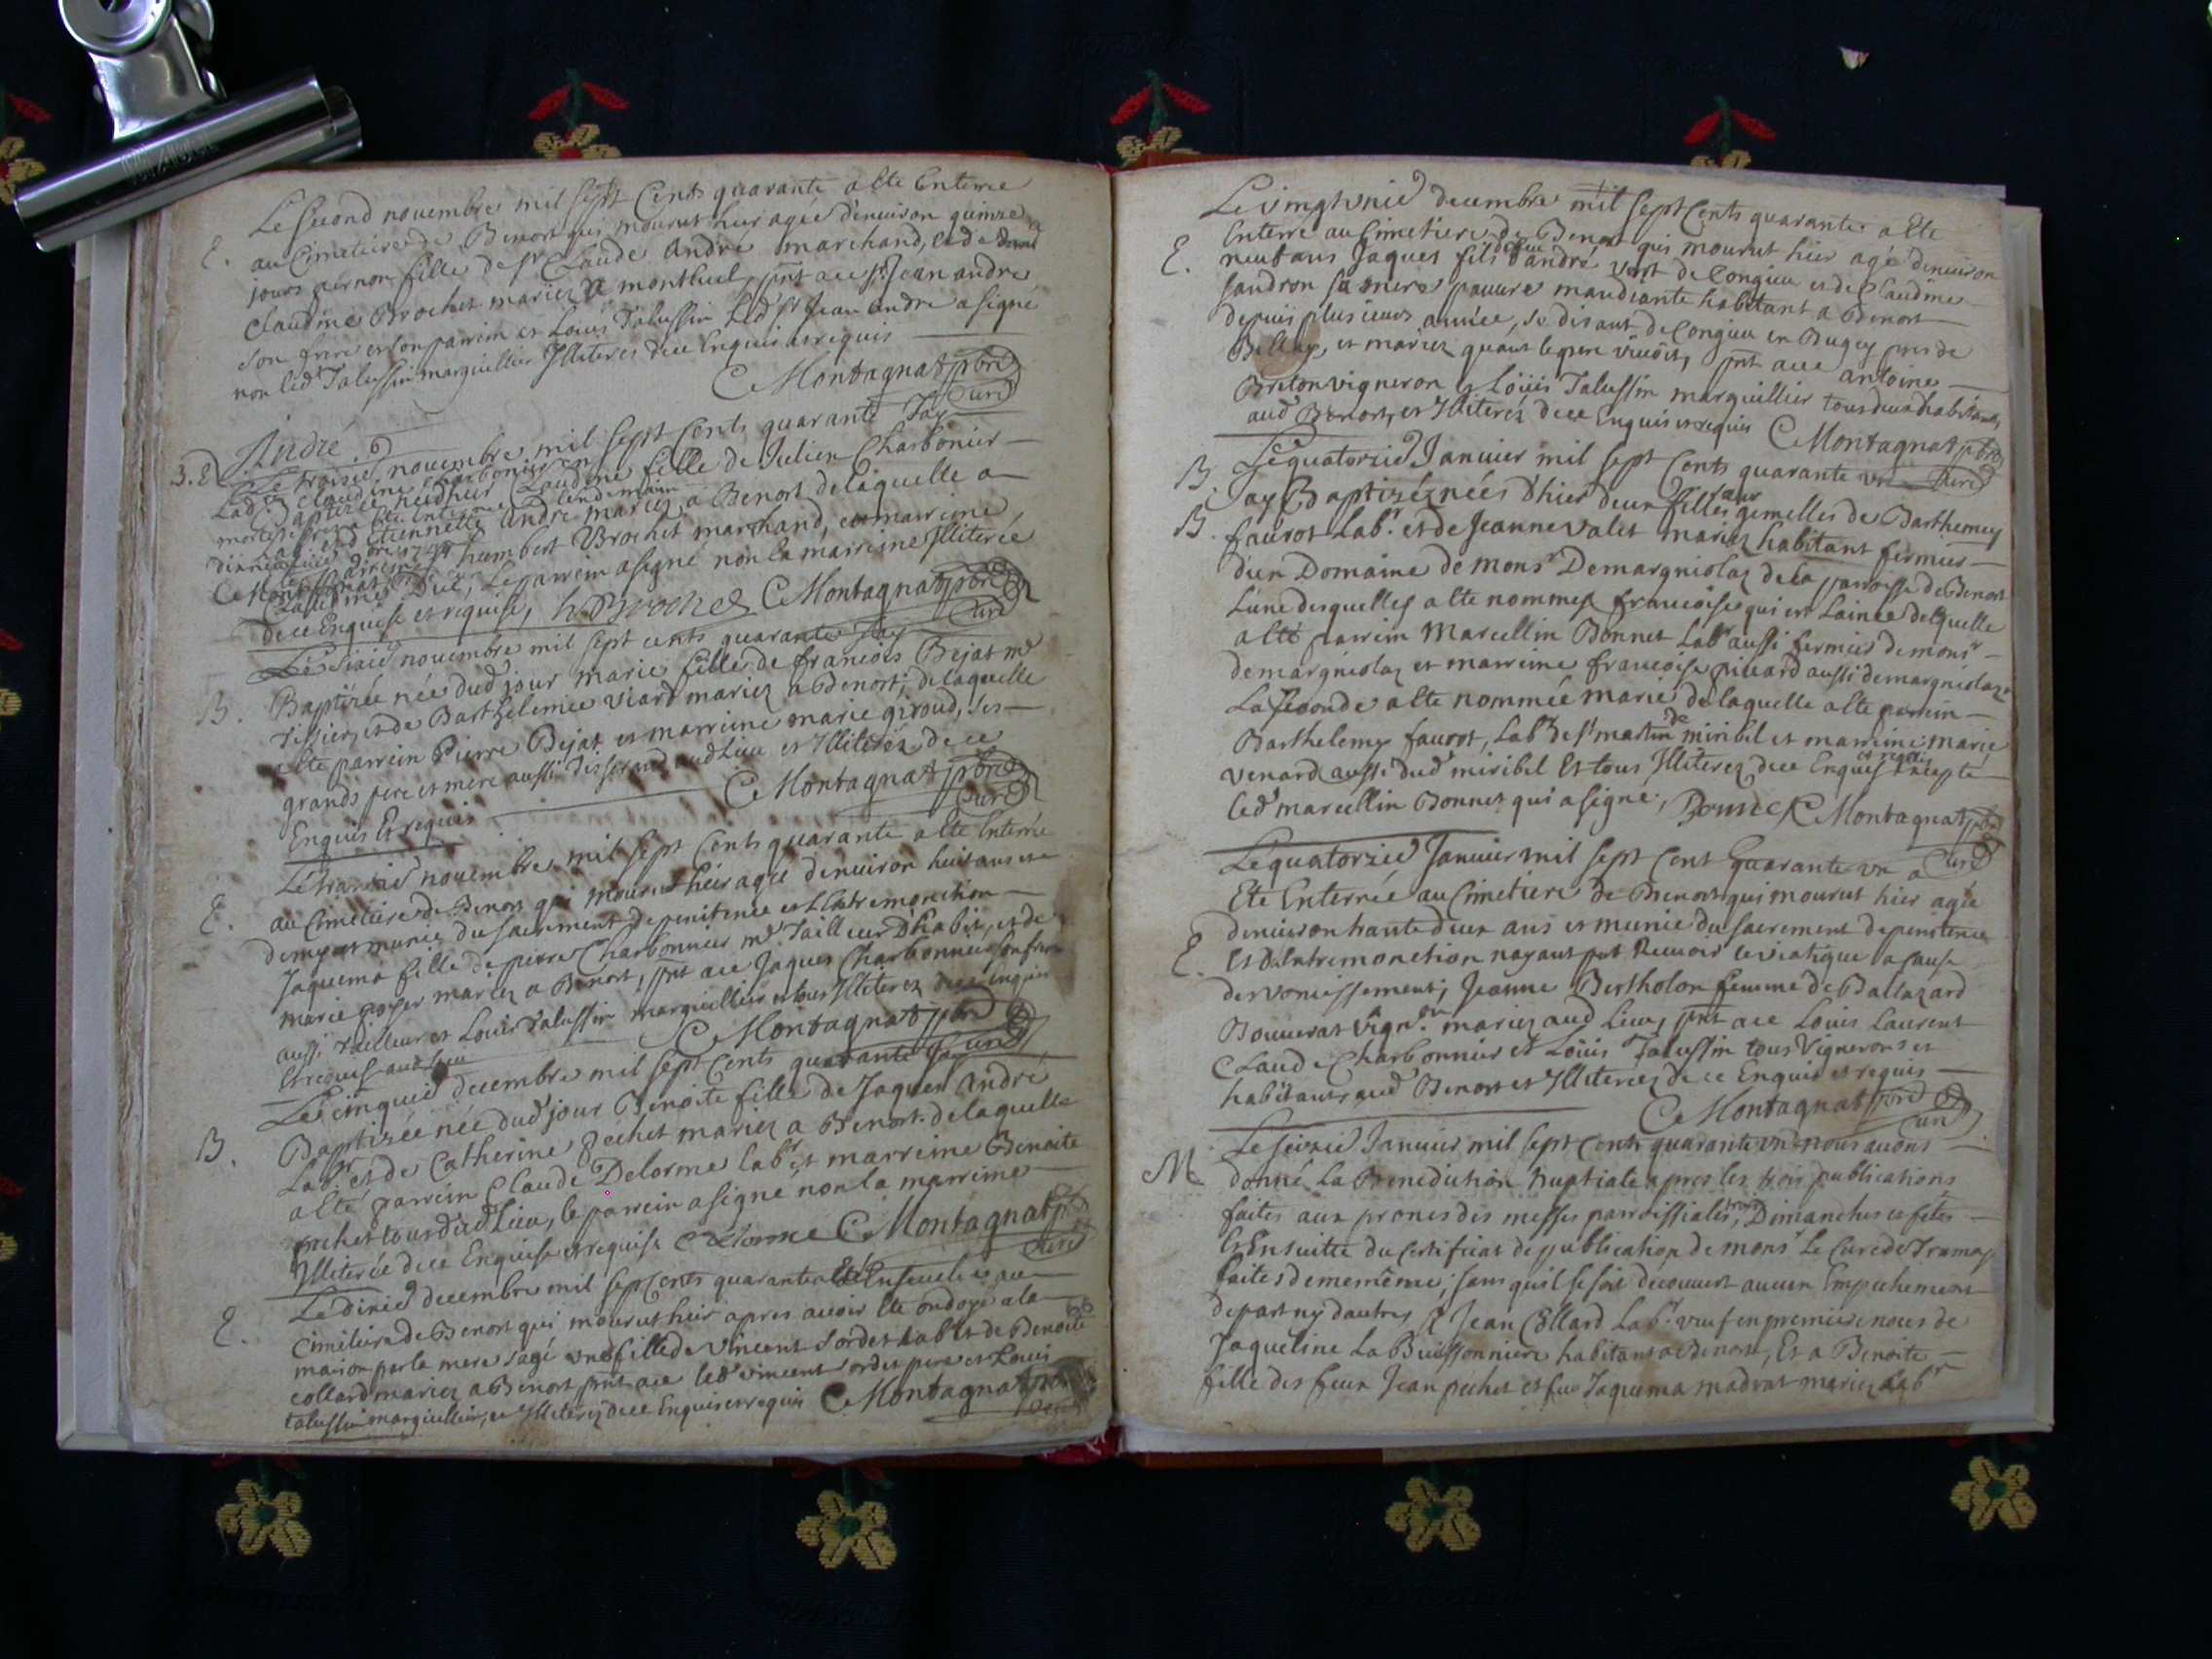 Le second novembre mil sept Cents quarante a Ete Enterrée
E. au Cimetiere de Benost qui mourut hier agée d'environ quinze
jours fille de Sr Claude André marchand, et de
Claudine Brochet mariez de montluel, pnt ace Sr Jean andré
son frere et son parrein et Louis Talussin Led Sr Jean andré a signé
non led Talussin marguillier Illiteres de ce Enquis et requis
C Montagnat pbre
Curé
André
B. E Le troisie novembre mil sept Cents quarante Jay
Baptizée née d'hier Claudine fille de Julien Charbonier
Lad Claudine Charbonier
morte a Ete Enterrée Lendemain
et d'Etiennette André mariez a Benost de laquelle a
Ete parrein Sr humbert Brochet marchand, et marreine
C Montagnat
Claudine Duc, Le parrein a signé non la marreine Illiterée
de ce Enquise et requise, h. Brochet C Montagnat pbre
Curé
Le sixie novembre mil sept cents quarante Jay
B. Baptizée née dud jour marie fille de francois Bejat me
tissier, et de Barthelemie viard mariez a Benost; de laquelle
a Ete parrein Pierre Bejat et marreine marie giroud, ses
grands pere et mere aussi tisserand aud Lieu et Illiterez de ce
Enquis Et requis C Montagnat pbre
Curé
Le novembre mil sept Cents quarante a Ete Enterrée
E. au Cimetiere de Benost qui mourut hier agée denviron huit ans et
demy et munie du sacrement de penitence et d'Extremonction
Jaquema fille de pierre Charbonnier me Tailleur D'habit, et de
marie goyer mariez a Benost, pnt ace Jaques Charbonnier son frere
aussi tailleur et Louis Talussin marguillier et tous Illiterez de ce Enquis
Et requis aud Lieu C Montagnat pbre
Curé
Le cinquie decembre mil sept Cents quarante Jay
B. Baptizée née dud jour Benoite fille de Jaques André
Labr et de Catherine pechet mariez a Benost. de laquelle
a Eté parrein Claude Delorme labr et marreine Benoite
pechet tous dud Lieu, le parrein a signé non la marreine
Illiterée de ce Enquise et requise C Delorme C Montagnat pbre
Curé
Le dixie decembre mil sept Cents quarante a Eté Ensevelie au
E. Cimetiere de Benost qui mourut hier apres avoir Ete ondoyé a la
maison par la mere sage une fille de vincent Sordet Labr et de Benoite
collard mariez a Benost pnt ace led vincent Sordet pere et Louis
talussin marguillier, et Illiterez de ce Enquis et requis C Montagnat pbre
Curé
Le vingtunie decembre mil sept Cents quarante a Ete
Enterré au Cimetiere de Benost qui mourut hier agé denviron
E. neuf ans Jaques fils de feu andré vert de Congieu et de Claudine
Jandron sa mere pauvre mandiante habitant a Benost
depuis plusieurs année, se disant de Congieu en Bugey pres de
Bellay, et mariez quant le pere vivoit, pnt ace antoine
Breton vigneron et Loüis Talussin marguillier tous deux habitants
aud Benost, et Illiterez de ce Enquis et requis C Montagnat pbre
Curé
B. Le quatorzie Janvier mil sept Cents quarante un
Jay Baptizéz nées d'hier deux filles sœur gemelles de Barthemey
B. faurot Labr. et de Jeanne valet mariez habitant fermier
d'un Domaine de monsr Demargniolaz de la parroisse de Benost
L'une desquelles a Ete nommez francoise qui est Lainée de laquelle
a Eté parrein Marcellin Bonnet Labr aussi fermier de monsr
demargniolaz et marreine francoise picard aussi demargniolaz
La seconde a Ete nommée marie de laquelle a Ete parrein
Barthelemy faurot, Labr de St martin de miribel et marreine marie
venard aussi dud miribel Et tous Illiterez de ce Enquis et requis Excepté
led marcellin Bonnet qui a signé, Bonnet C Montagnat pbre
Curé
Le quatorzie Janvier mil sept Cent Quarante un a
Eté Enterrée au Cimetiere de Benost qui mourut hier agée
denviron trante deux ans et munie du sacrement de penitence
E. et d'Extremonction nayant put Recevoir le viatique a cause
des vomissement; Jeanne Bertholon femme de Baltazard
Bouverat vigner.on mariez aud Lieu, pnt ace Louis Laurent
Claude Charbonnier et Loüis Talussin tous vignerons et
habitants aud Benost et Illiterez de ce Enquis et requis
C Montagnat pbre
Curé
Le seizie Janvier mil sept Cents quarante un nous avons
M donné La Benediction Nuptiale apres les trois publications
faites aux prones des messes parroissiales trois Dimanches et fetes
Et Ensuitte du Certificat de publication de monsr Le Curé de Tramoy
faites de mesme; sans quil se soit decouvert aucun Empechement
de part ny dautres a Jean Collard Labr. veuf en premiere noces de
Jaqueline La Buissonniere habitant a Benost, Et a Benoite
fille des feux Jean pechet et feue Jaquema madrat mariez Labr